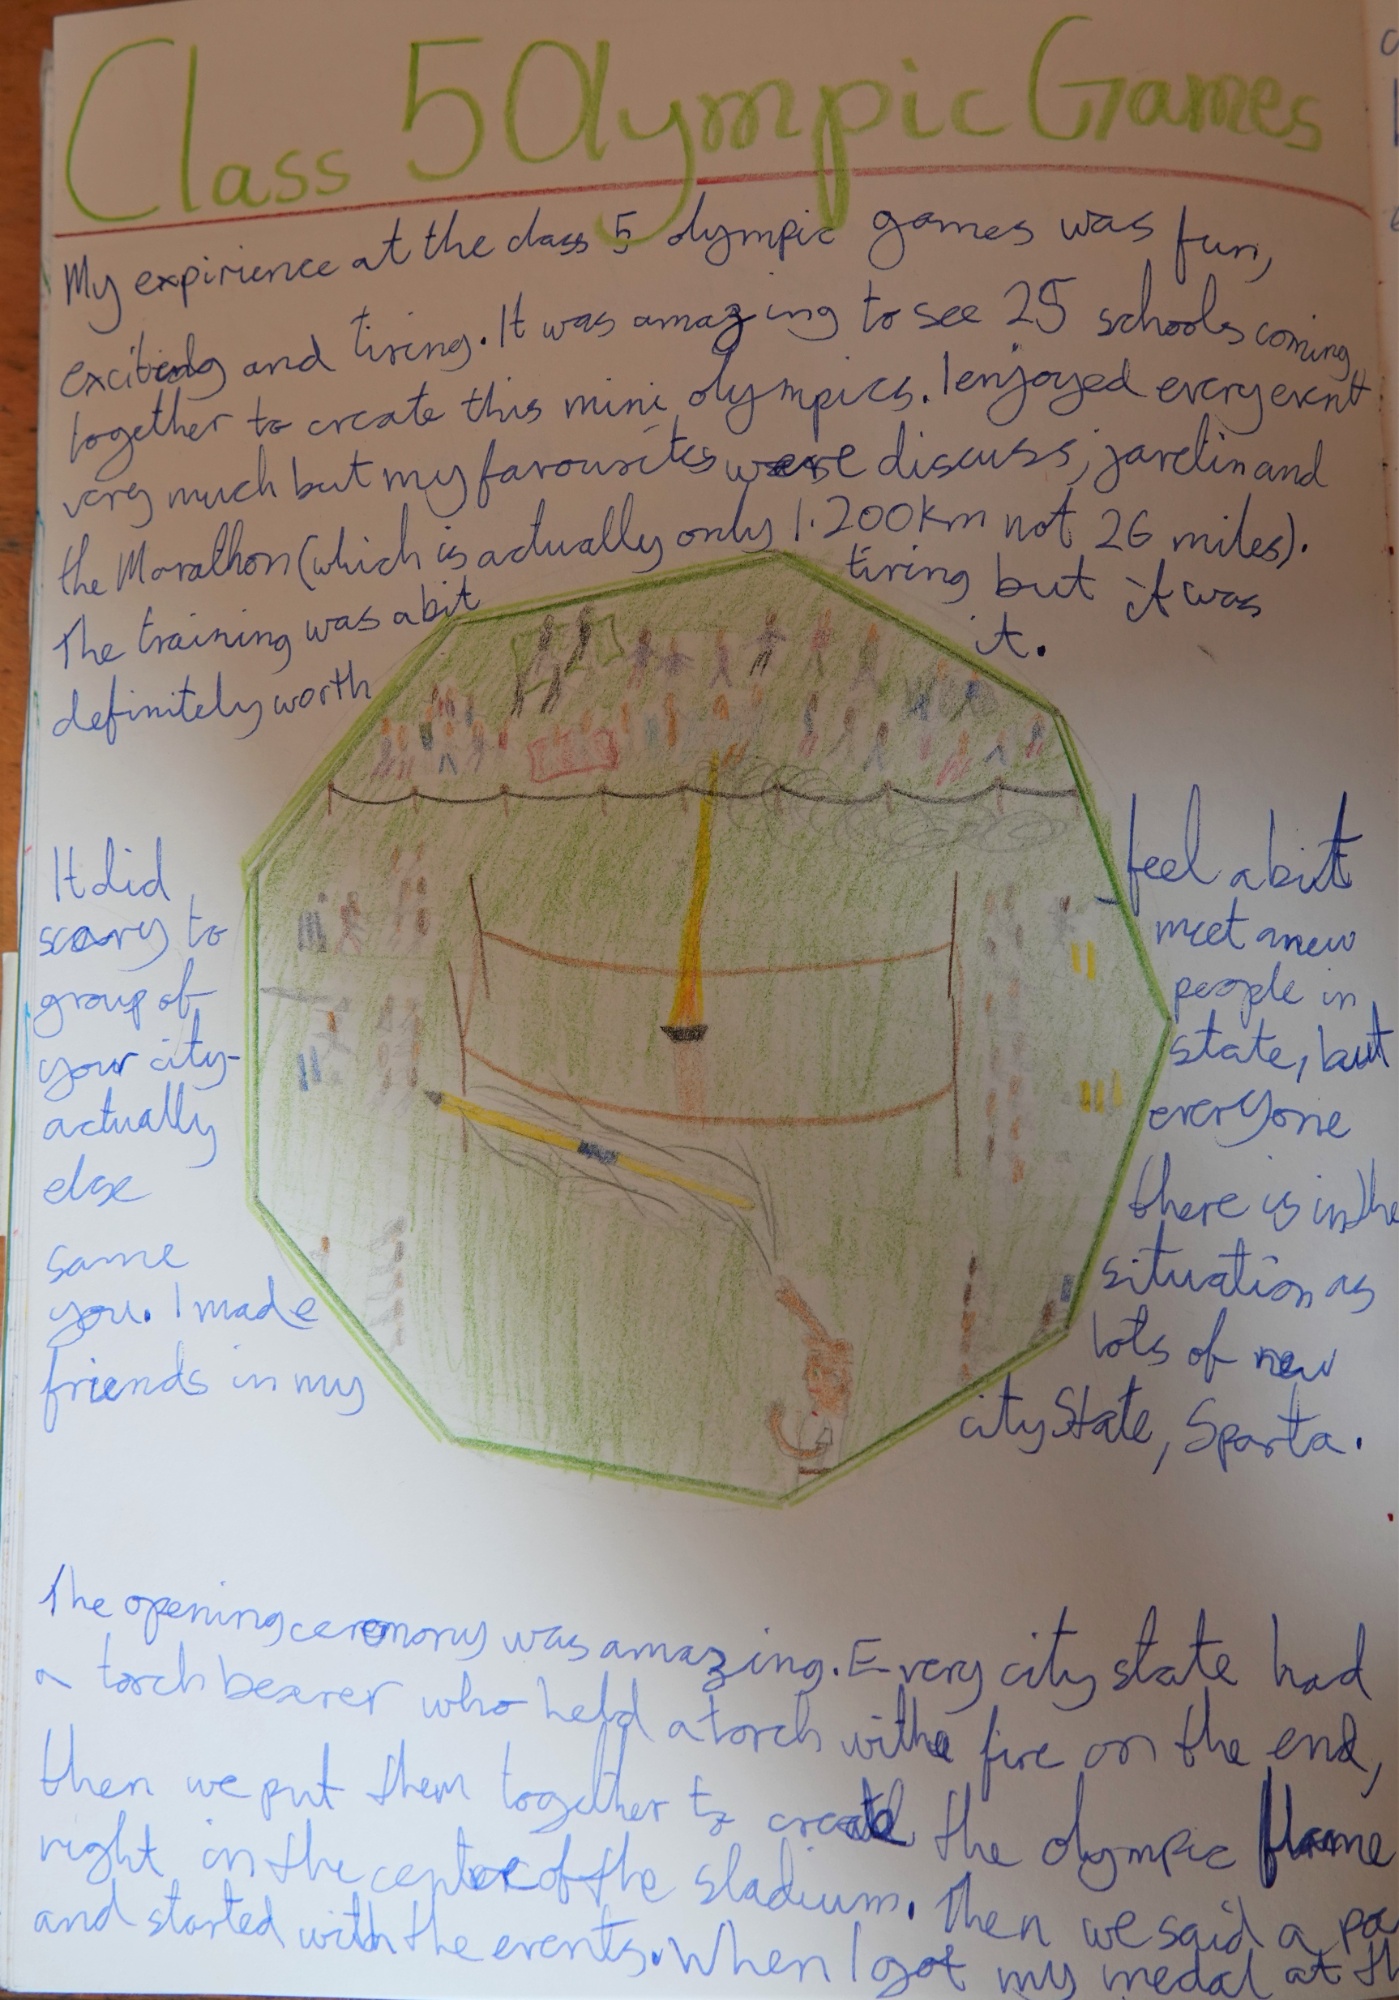 Class 5 Olympic Games
My expirience at the class 5 olympic games was fun,
exciting and tiring. It was amazing to see 25 schools coming
together to create this mini olympics. I enjoyed every event
very much but my favourites were discuss, javelin and
the Marathon (which is actually only 1.200km not 26 miles).
The training was a bit tiring but it was
definitely worth it.
It did feel a bit
scary to meet a new
group of people in
your city- state, but
actually everyone
else there is in the
same situation as
you. I made lots of new
friends in my city State, Sparta.
The opening ceremony was amazing. Every city state had
a torch bearer who held a torch with fire on the end,
then we put them together to create the olympic flame
right in the center of the stadium. Then we said a
and started with the events. When I got my medal at